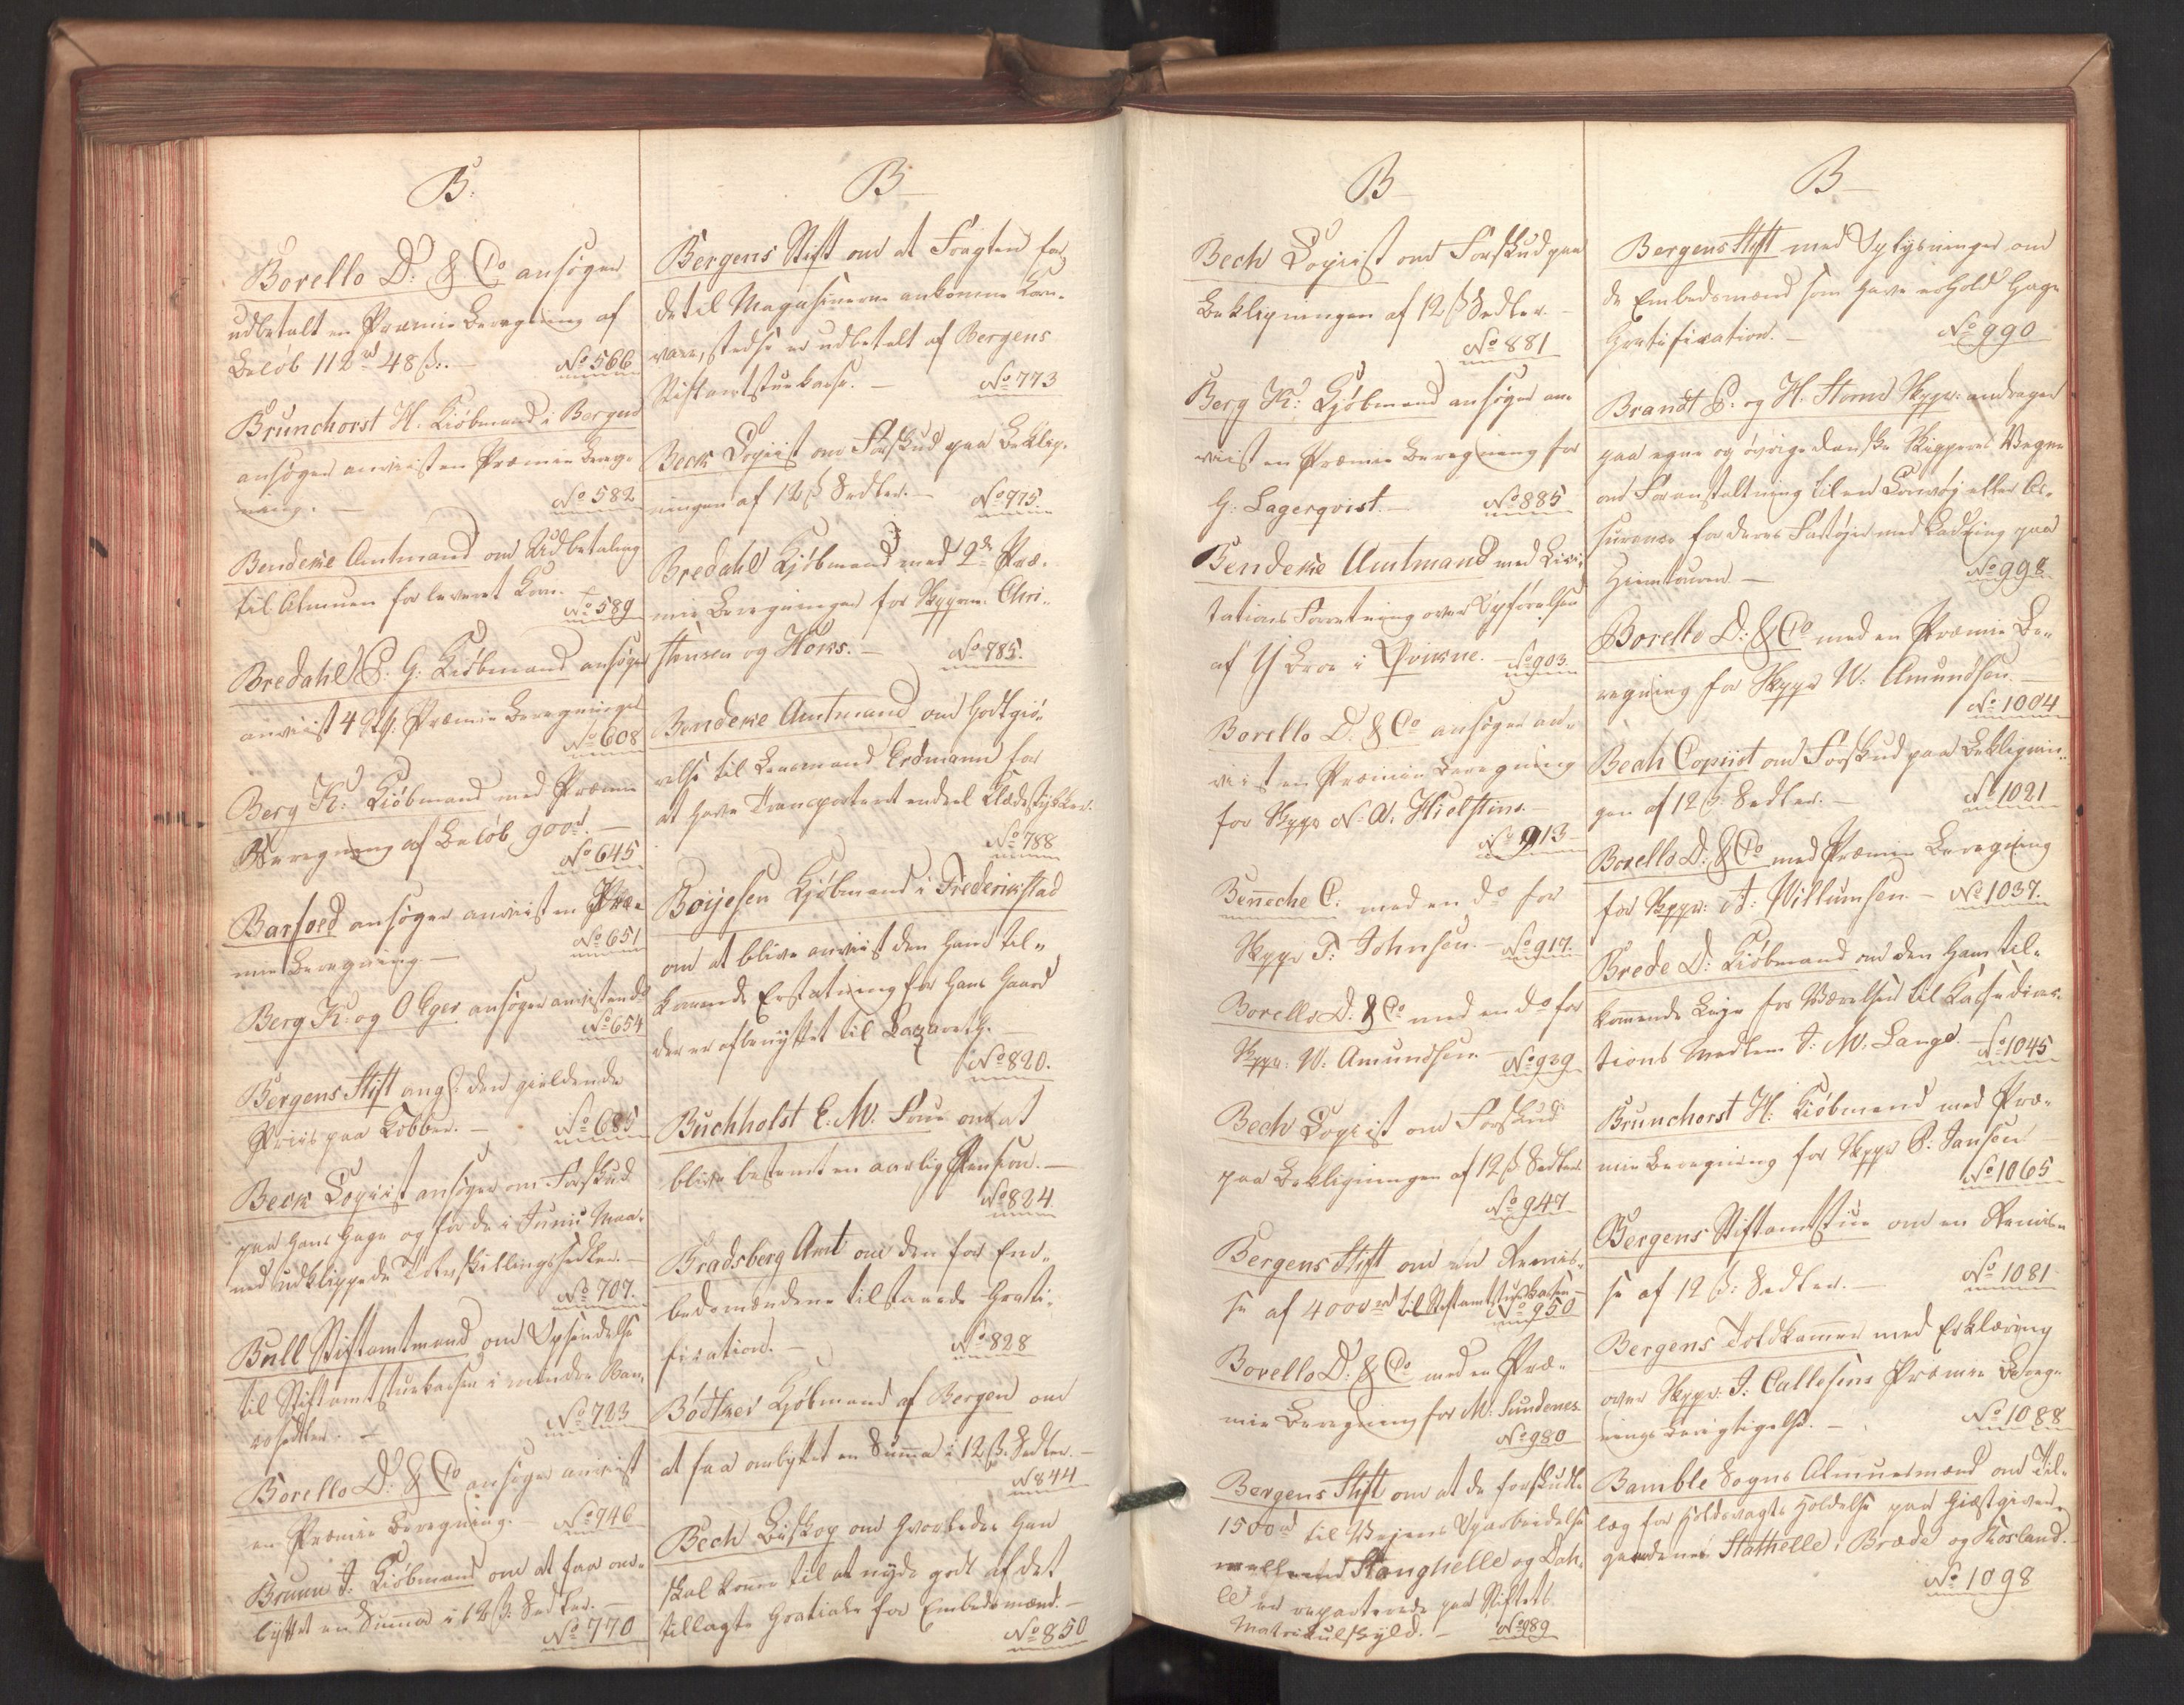 B.
Borello D: & Co ansøger
udbetalt en Præmie Beregning af
Beløb 112 rd 48 ß. —
No 566
Brunchorst H. Kiöbmand i Bergen
ansøger anviist en Præmie Bereg-
ning. —
No 582
Bendeke Amtmand om Udbetaling
til Almuen for leveret Korn. —
No 589
Bredahl P. G: Kiöbmand ansøger
anviist 4 Stk: Præmie Beregninger
No 608
Berg K: Kiöbmand med Præmie
Beregning af Beløb 900 rd. —
No 645
Barfoed ansøger anviist en Præ-
mie Beregning. —
No 651
Berg K. og Olger ansøger anviist end
No 654
Bergens Stift angf: den gieldende
Priis paa Kobber. —
No 685
Beck Copiist ansøger om Forskud
paa hans Gage og for de i Junii Maa-
ned udklippede Tolvskillingssedler. —
No 707.
Bull Stiftamtmand om Opsendelse
til Stiftamtstuekassen i mindre Ban-
cosedler. —
No 723
Borello D: & Co ansøger anviist
en Præmie Beregning. —
No 746
Bruun J: Kiöbmand om at faa om-
byttet en Summa i 12 ß: Sedler. —
No 770
B
Bergens Stift om at Fragten for
de til Magasinerne ankomne Korn-
vare, stedse er udbetalt af Bergens
Stiftamtstuekasse. —
No 773
Beck Copiist om Forskud paa Beklip-
ningen af 12 ß Sedler. —
No 775.
Bredahl Kjøbmand med 2de Præ-
mie Beregninger for Skypperne Chri-
stensen og Höns. —
No 785.
Bendeke Amtmand om Godtgiö-
relse til Lensmand Erdmann for
at have Transporteret endeel Klædestykker.
No 788
Boyesen Kjøbmand i Frederikstad
om at blive anviist den ham til-
kommende Erstatning for hans Gaard
der er afbenyttet til Lazareth. —
No 820.
Buchholst E. M. Frue om at
blive bestemt en aarlig Pension. —
No 824
Bradsberg Amt om den for Em-
bedsmændene tilstaaede Grati-
fication. —
No 828
Bødtker Kjøbmand af Bergen om
at faa ombyttet en Summa i 12 ß. Sedler. —
No 844
Bech Biskop om hvorledes han
skal komme til at nyde godt af det
tillagte Gratiale for Embedsmænd. —
No 850
B
Bech Copiist om Forskud paa
Beklipningen af 12 ß Sedler —
No 881
Berg K: Kjøbmand ansøger an-
viist en Præmie Beregning for
G: Lagerqvist. —
No 885
Bendeke Amtmand med Lici-
tations Forretning over Opførelsen
af 4 Broe i Qvikne. —
No 903.
Borello D. & Co ansøger an-
viist en Præmie Beregning
for Skyppr N. A. Kielstine. —
No 913
Benneche C. med en do for
Skyppr T: Johnsen. —
No 917.
Borello D. & Co med en do for
Skyppr: W. Amundsen. —
No 939
Bech Copiist om Forskud
paa Beklipningen af 12 ß Sedler
No 947
Bergens Stift om en Remis-
se af 4000 rd til Stiftamtstuekassen —
No 950
Borello D: & Co med en Præ-
mie Beregning for M: Sundenes
No 980
Bergens Stift om at de forskudte
1500 rd til Veiens Oparbeidelse
mellem Stanghelle og Dah-
le er reparterede paa Stiftets
Matrikulskyld. —
No 989
B
Bergens Stift med Oplysninger om
de Embedsmænd som have erholdt Gage
Gratification. —
No 990
Brandt P. og H. Storm Skyppr: andrager
paa egne og øvrige danske Skipperes Vegne
om Foranstaltning til en Convoj eller As-
surance for deres Fartøier med Ladning paa
Hiemtouren —
No 998
Borello D: & Co med en Præmie Be-
regning for Skyppr W: Amundsen. —
No 1004
Bech Copiist om Forskud paa Beklipnin-
gen af 12 ß: Sedler. —
No 1021
Borello D: & Co med Præmie Beregning
for Skyppr: A: Willumsen. —
No 1037.
Brede D: Kiöbmand om den ham til-
kommende Leje for Værelser til Kasse direc-
tions Medlem J. M. Lange. —
No 1045
Brunchorst H: Kiöbmand med Præ-
mie Beregning for Skyppr P: Jansen —
No 1065
Bergens Stiftamtstue om en Remis-
se af 12 ß: Sedler. —
No 1081
Bergens Toldkammer med Erklæring
over Skyppr: J: Callesens Præmie Bereg-
nings Berigtigelse. —
No 1088
Bamble Sogns Almuesmænd om Til-
læg for Holdsvagts Holdelse paa Giæstgiver-
gaardene Stathelle, Bræde og Rosland. —
No 1098